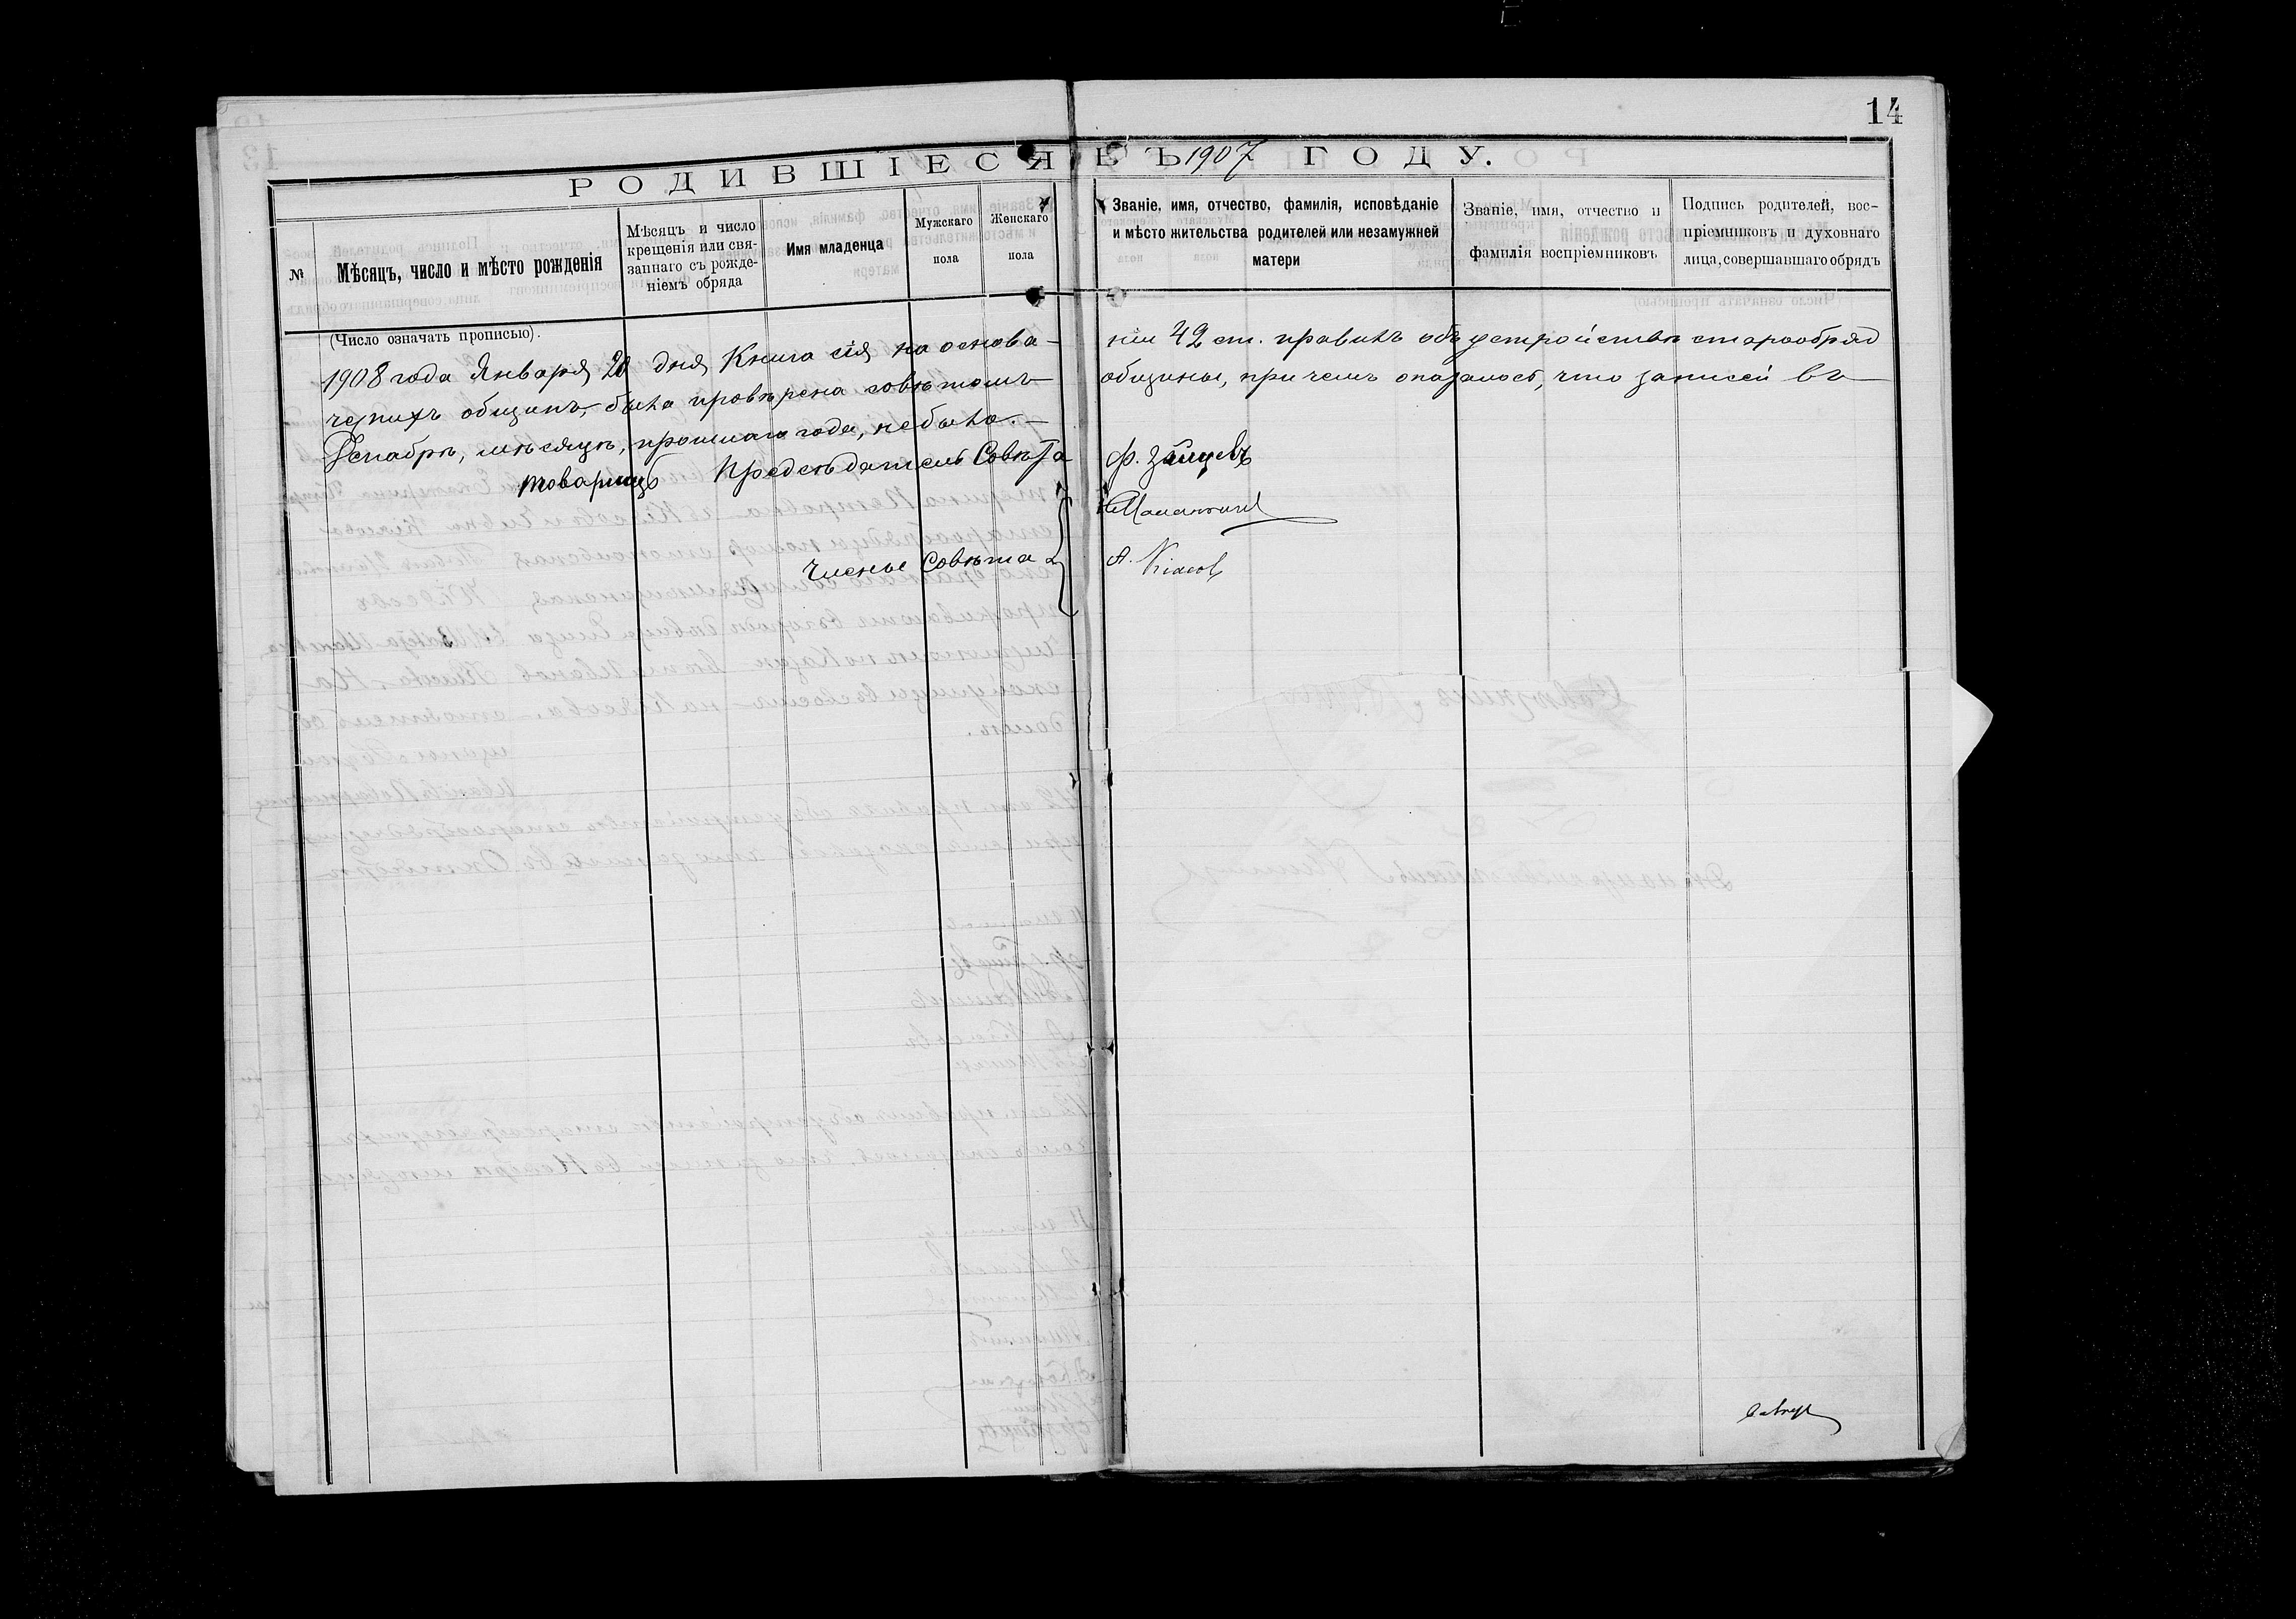 14
РОДИВШІЕСЯ ВЪ 1907 ГОДУ.
№
Мѣсяцъ, число и мѣсто рожденія
Мѣсяцъ и число
крещенія или свя-
заннаго съ рожде-
ніемъ обряда
Имя младенца
Мужскаго
пола
Женскаго
пола
Званіе, имя, отчество, фамилія, исповѣданіе
и мѣсто жительства родителей или незамужней
матери
Званіе, имя, отчество и
фамилія воспріемниковъ
Подпись родителей, вос-
пріемниковъ и духовнаго
лица, совершавшаго обрядъ
(Число означать прописью).
1908 года Января 20 дня Книга сія на основа- ніи 42 ст. правилъ объ устройствѣ старообряд
ческихъ общинъ, была провѣрена совѣтомъ общины, при чемъ оказалось, что записей въ
Декабрѣ, мѣсяцѣ, прошлаго года, не было.
Товарищъ Предсѣдателя Совѣта Ф. Зайцевъ
Члены Совѣта
А. Кіасовъ